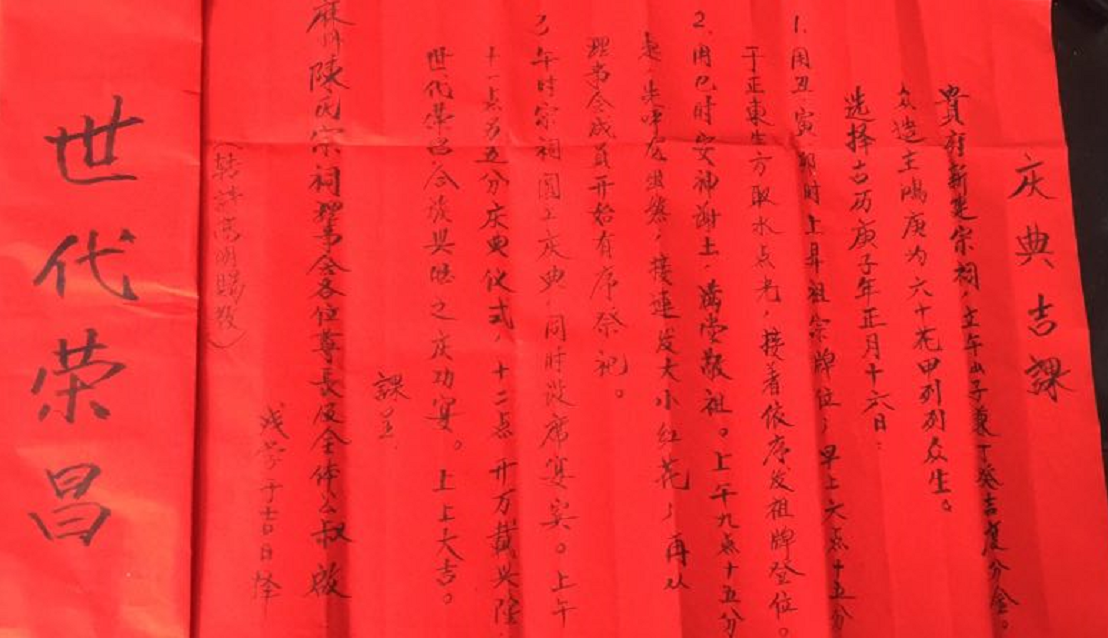 庆典吉課
貴府新建宗祠，立午山子兼丁癸吉度分金。
众造主鸿庚为六十花甲列列众生。
选择吉历庚子年正月十六日：
1.用丑寅卯时上昇祖宗牌位，早上六点十五分
于正東生方取水点光，接着依序发祖牌登位。
2.用巳时安神谢土，满堂敬祖。上午九点十五分
起，先呼龙，接連发大小红花，再以
理事会成员开始有序祭祀。
3午时宗祠圓工庆典，同时设席宴宾。上午
十一点五五分庆典仪式，十二点开万载兴隆，
世代榮昌合族興旺之庆功宴。上上大吉。
課呈
陳氏宗祠理事会各位尊長及全体公叔 啟
浅学于吉日择
世代荣昌